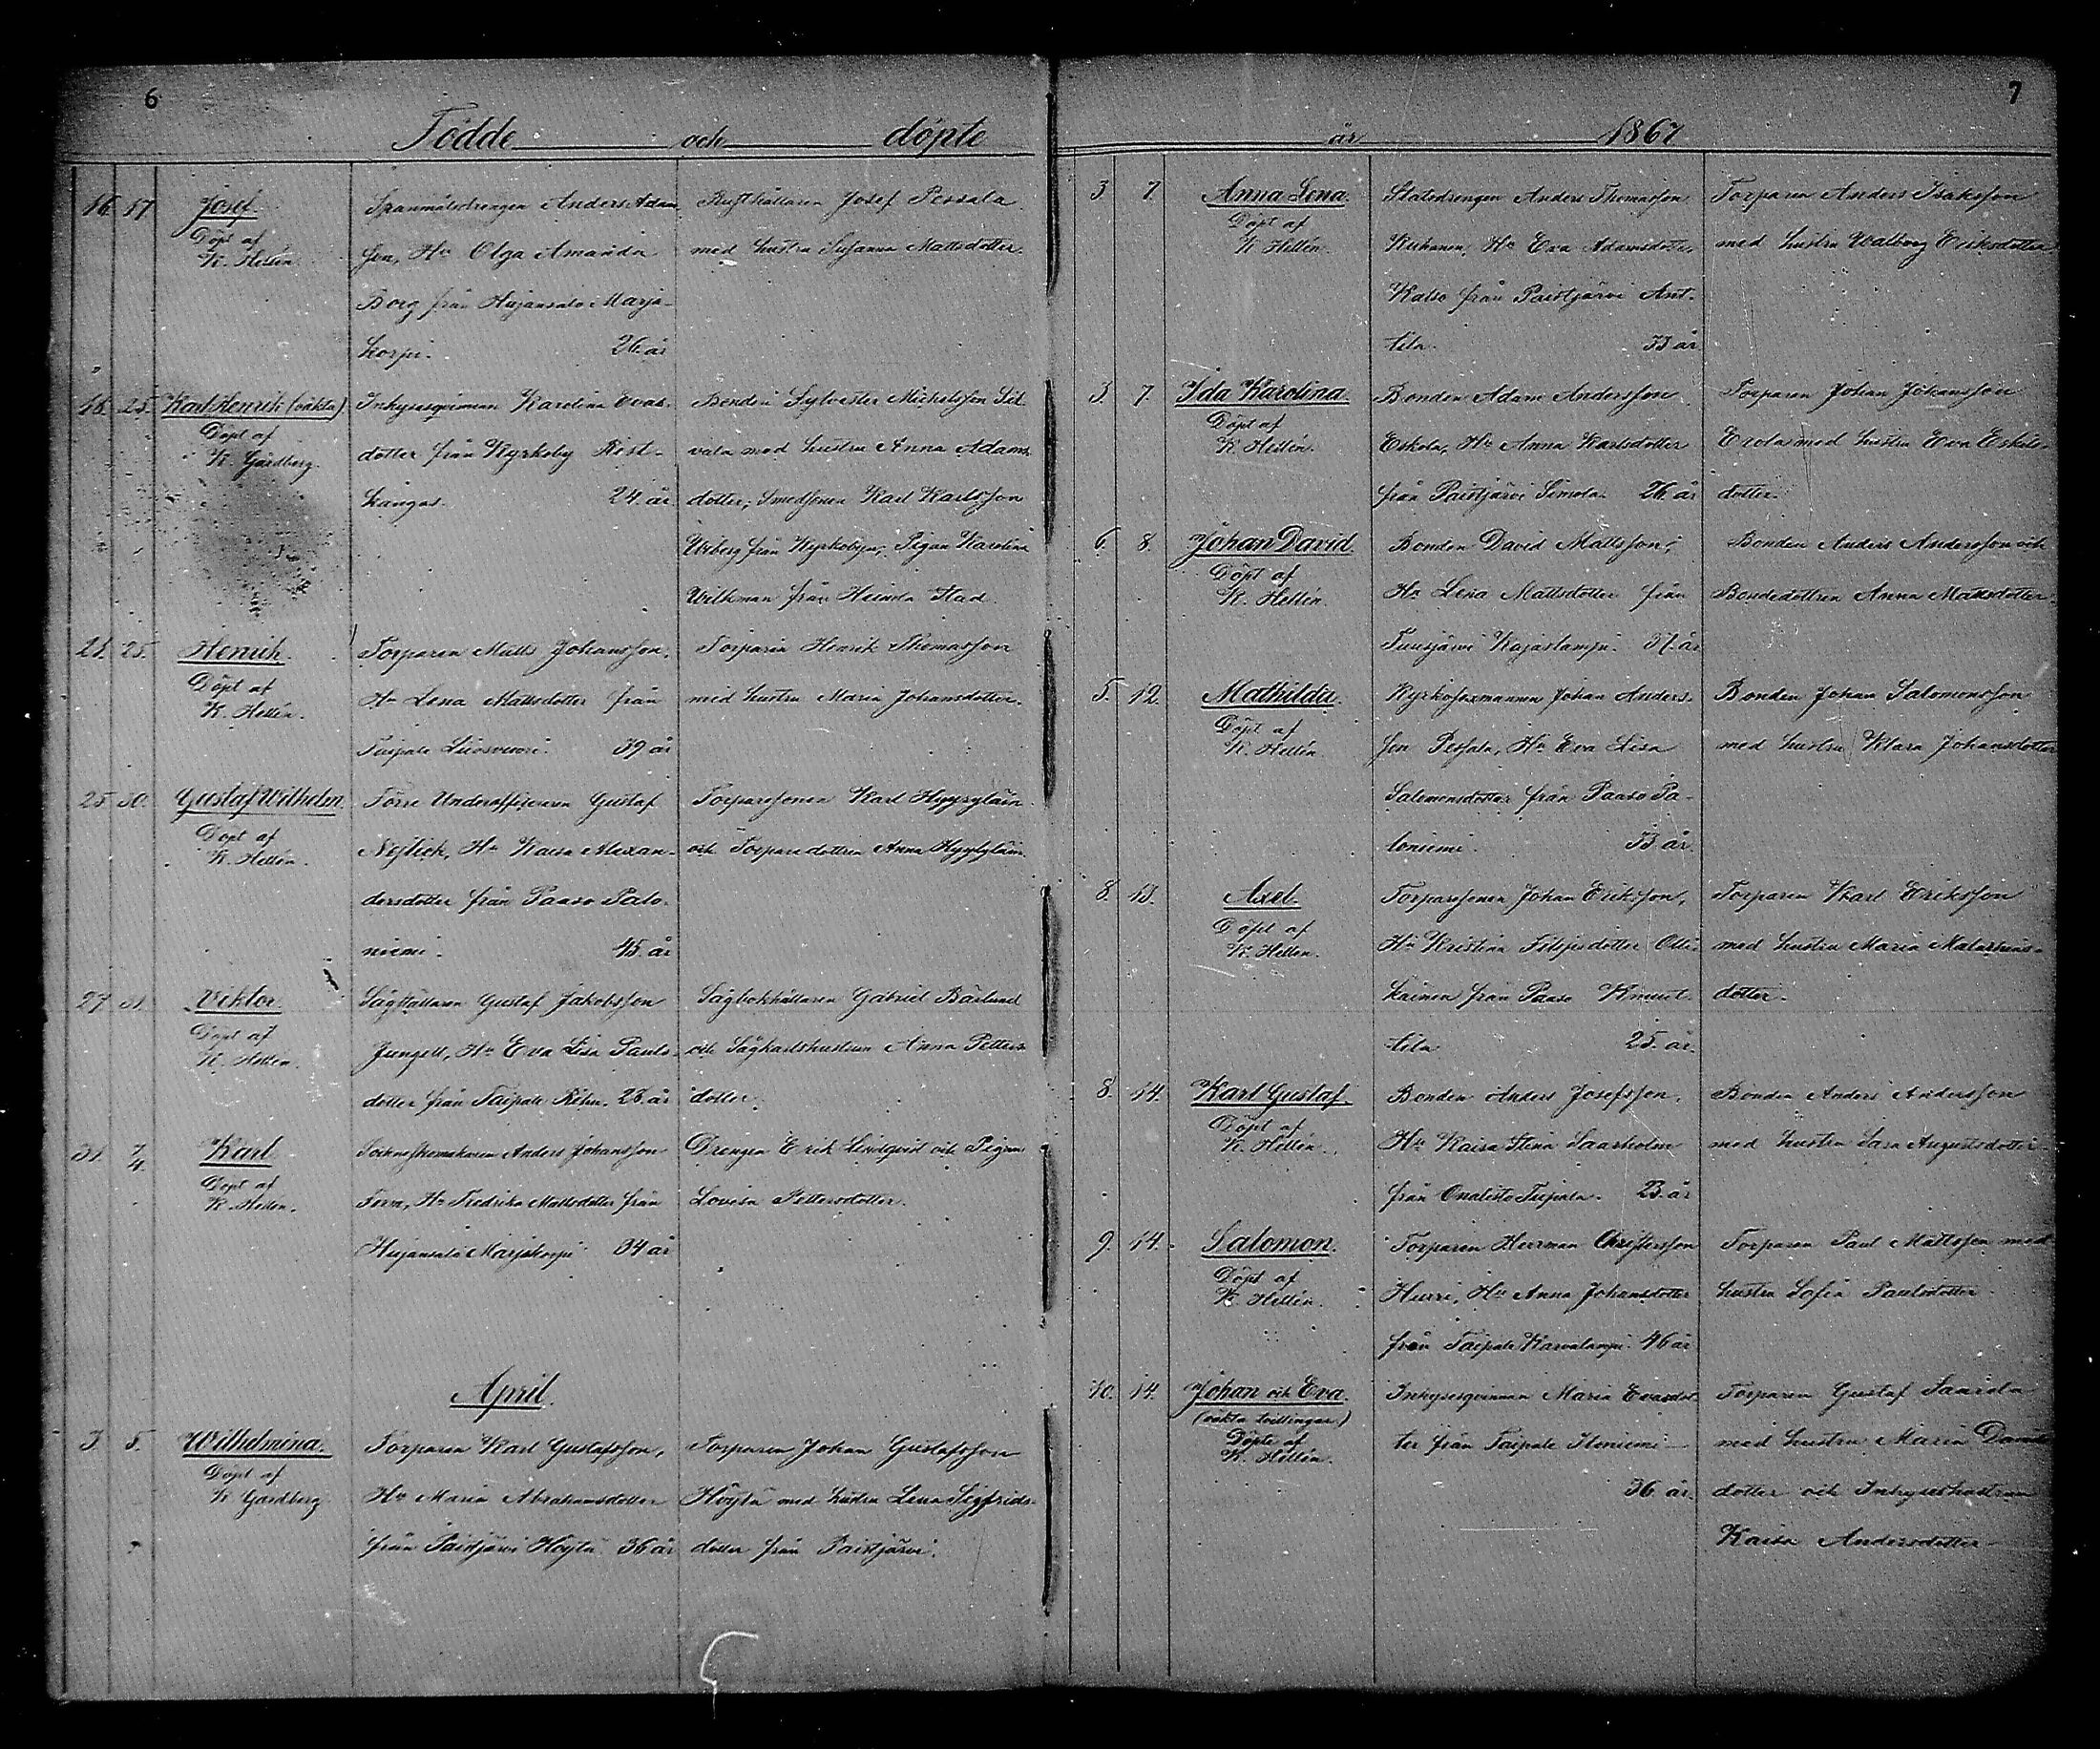 6
Födde och döpte
16. 17. Josef.
Döpt af
K. Hellén.
Spanmålsdrengen Anders Adam-
son, Hu Olga Amanda
Borg från Hujansalo Marja-
korpi. 26 år
Rusthållaren Josef Pessala
med hustru Susanna Mattsdotter.
16. 25. Karl Henrik (oäkta)
Döpt af
K. Gårdberg.
Inhysesqvinnan Karolina Evas-
dotter från Kyrkoby Rist-
kangas. 24 år.
Bonden Sylvester Michelsson Sil-
vala med hustru Anna Adams-
dotter; Smedsonen Karl Karlsson
från Kyrkobyn, Pigan Karolina
Wilkman från Heinola Stad.
21. 25. Henrik.
Döpt af
K. Hellén.
Torparen Matts Johansson,
Hu Lena Mattsdotter från
Taipale 39 år
Torparen Henrik Thomasson
med hustru Maria Johansdotter.
25. 30. Gustaf Wilhelm.
Döpt af
K. Hellén.
Förre Underofficeren Gustaf
Hu Kaisa Alexan-
dersdotter från Paaso Palo-
niemi. 45 år
Torparesonen Karl
och Torparedottren Anna
27. 31. Viktor.
Döpt af
K. Hellén.
Sågställaren Gustaf Jakobsson
Jungell, Hu Eva Lisa Pauls-
dotter från Taipale 28 år
Sågbokhållaren Gabriel Bärlund
och Sågkarlshustrun Anna Petters-
dotter.
31. 7/4. Karl
Döpt af
K. Hellén.
Sockneskomakaren Anders Johansson
Form, Hu Fredrika Mattsdotter från
Hujansalo Marjokorpi 34 år
Drengen Erik Lindqvist och Pigan
Lovisa Pettersdotter.
April.
3. 5. Wilhelmina.
Döpt af
K Gårdberg
Torparen Karl Gustafsson,
Hu Maria Abrahamsdotter
från Paistjärvi Höytä 36 år
Torparen Johan Gustafsson
Höytä med hustru Lena Sigfrids-
dotter från Paistjärvi.
7
år 1867
3 7. Anna Lena.
Döpt af
K Hellén.
Statsdrengen Anders Thomasson
Hu Eva Adamsdotter
Katso från Paistjärvi Ant-
tila. 33 år
Torparen Anders Isaksson
med hustru Walborg Eriksdotter
3. 7. Ida Karolina.
Döpt af
K. Hellén.
Bonden Adam Andersson
Eskola, Hu Anna Karlsdotter
från Paistjärvi Simola. 26 år
Torparen Johan Johansson
Erola med hustru Eva Eskils-
dotter.
6. 8. Johan David.
Döpt af
K. Hellén.
Bonden David Mattsson,
Hu Lena Mattsdotter från
Tuusjärvi Kajaslampi. 37. år
Bonden Anders Andersson och
Bondedottren Anna Mattsdotter.
5. 12. Mathilda.
Döpt af
K. Hellén
Kyrkosexmannen Johan Anders-
son Pessala, Hu Eva Lisa
Salomonsdotter från Paaso Pa-
loniemi. 33 år.
Bonden Johan Salomonsson
med hustru Klara Johansdotter
8. 13. Axel.
Döpt af
K. Hellén.
Torparesonen Johan Eriksson,
Hu Kristina Filipsdotter Otti-
kainen från Paaso Knuut-
tila 25. år.
Torparen Karl Eriksson
med hustru Maria
dotter.
8. 14. Karl Gustaf.
Döpt af
K. Hellén.
Bonden Anders Josefsson,
Hu Kaisa Stina Saarholm
från Onalisto Taipale. 23. år
Bonden Anders Andersson
med hustru Sara Augustsdotter
9. 14. Salomon.
Döpt af
K. Hellén.
Torparen Herrman Christersson
Hurri, Hu Anna Johansdotter
från Taipale Karvalampi. 46 år
Torparen Paul Mattsson med
hustru Sofia Paulsdotter
10. 14. Johan och Eva.
(oäkta tvillingar)
Döpte af
K. Hellén.
Inhysesqvinnan Maria Evasdot-
ter från Taipale Iloniemi
36 år.
Torparen Gustaf Saarela
med hustru Maria Davids-
dotter och Inhyseshustrun
Kaisa Andersdotter